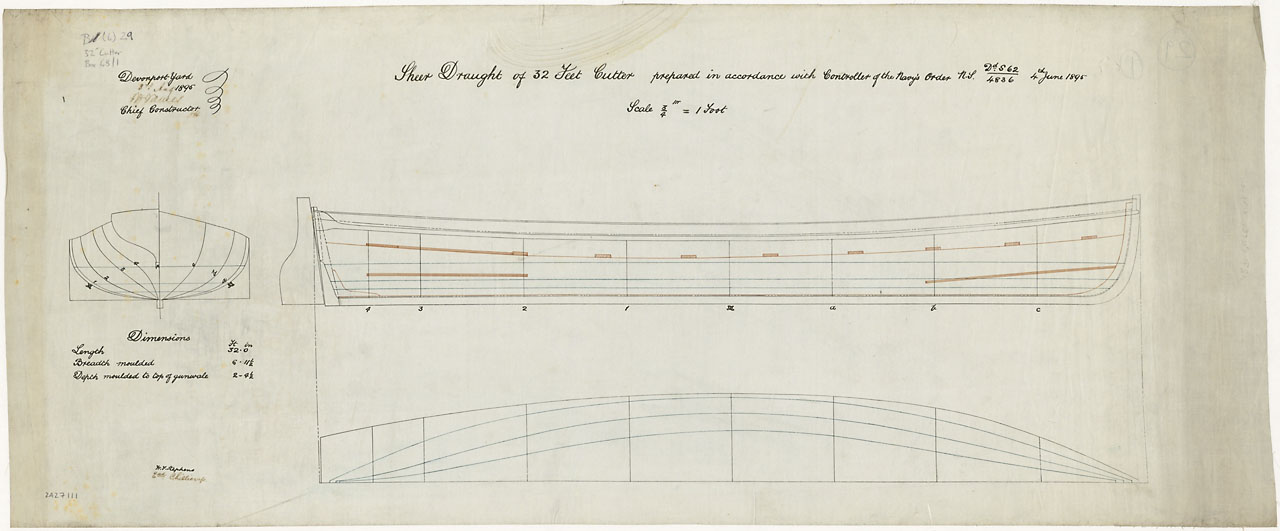 (L) 29
32' Cutter
Box 63/1
Devonport Yard
Aug 1895
Chief Constructor
Sheer Draught of 32 Feet Cutter prepared in accordance with Controller of the Navy's Order N.S. Dd. S 62 / 4836 4th June 1895
Scale 3/4 in = 1 Foot
4 3 2 1 a b c
Dimensions
Ft in
Length 32.0
Breadth moulded
Depth moulded to top of gunwale
2A27111